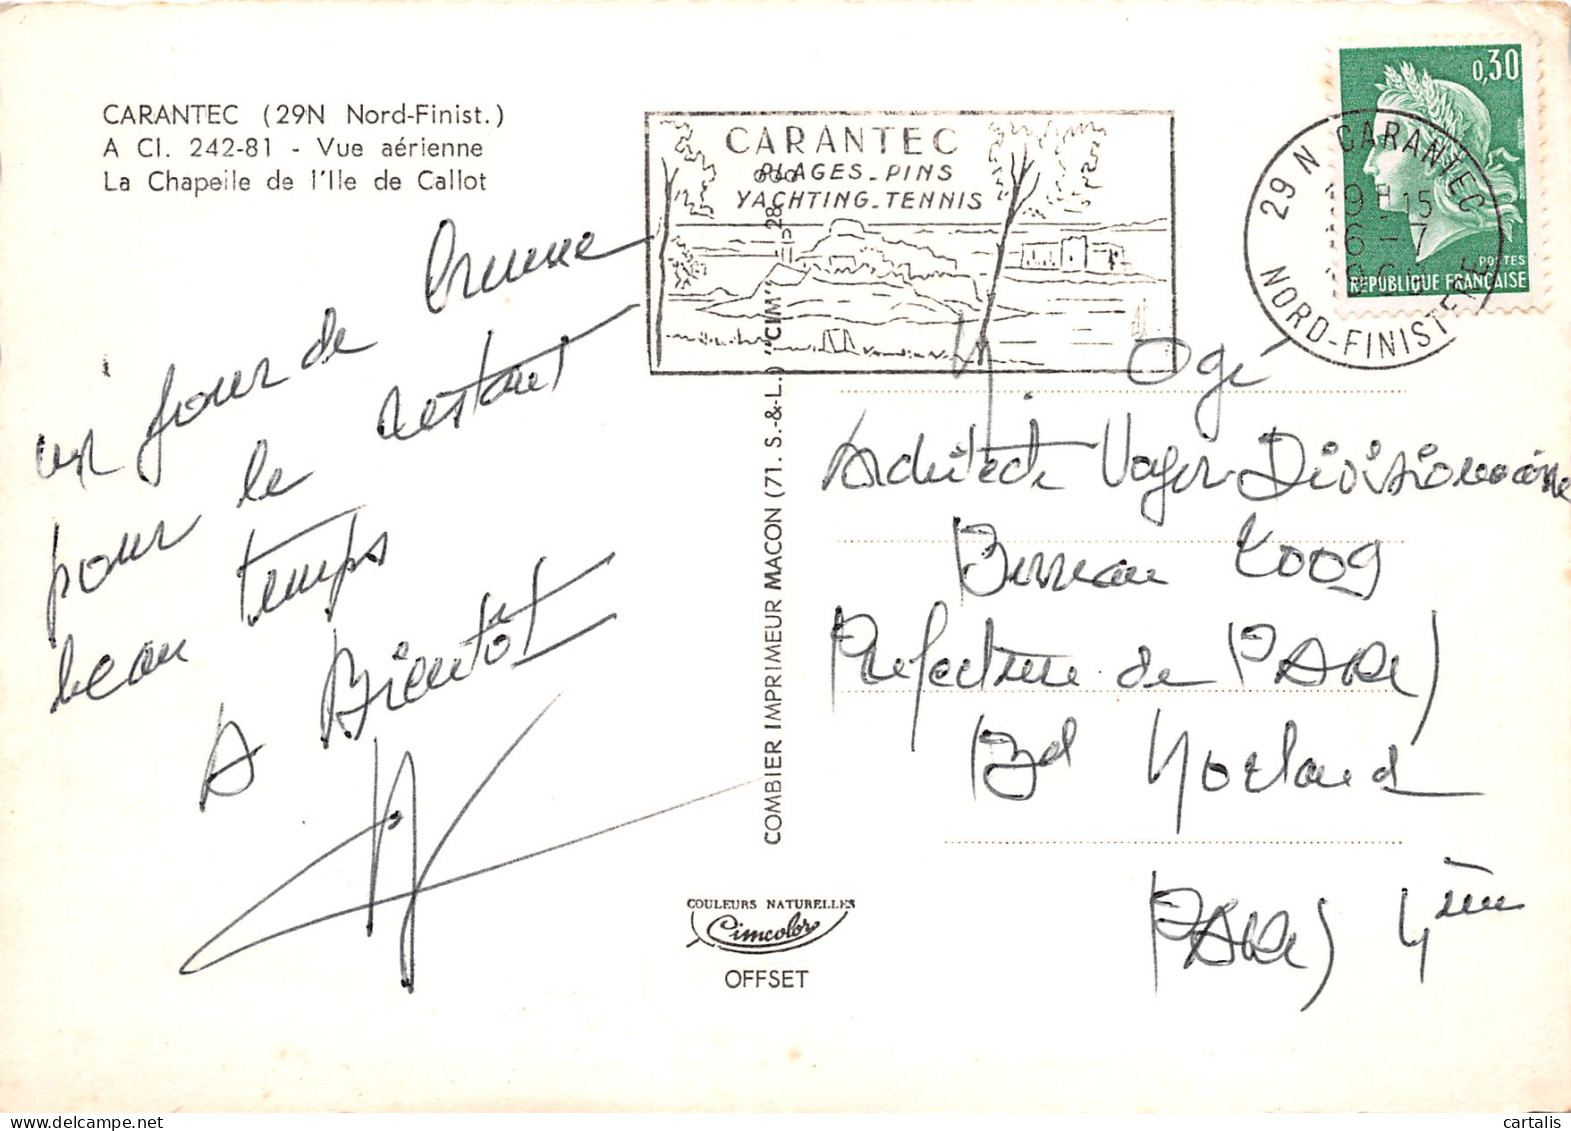 CARANTEC (29N Nord-Finist.)
A Cl. 242-81 - Vue aérienne
La Chapelle de l'Ile de Callot
un jour de brume
pour le restant
beau temps
A Bientôt
CARANTEC
PLAGES - PINS
YACHTING - TENNIS
0,30
POSTES
REPUBLIQUE FRANÇAISE
29 N CARANTEC
19H15
6-7
NORD-FINISTERE
COMBIER IMPRIMEUR MACON (71. S.-&-L.) "CIM" 28
M Ogé
Architecte Voyer Divisionnaire
Bureau 2009
Prefecture de PARIS
Bd Morland
PARIS 4ème
COULEURS NATURELLES
Cimcolor
OFFSET
cartalis